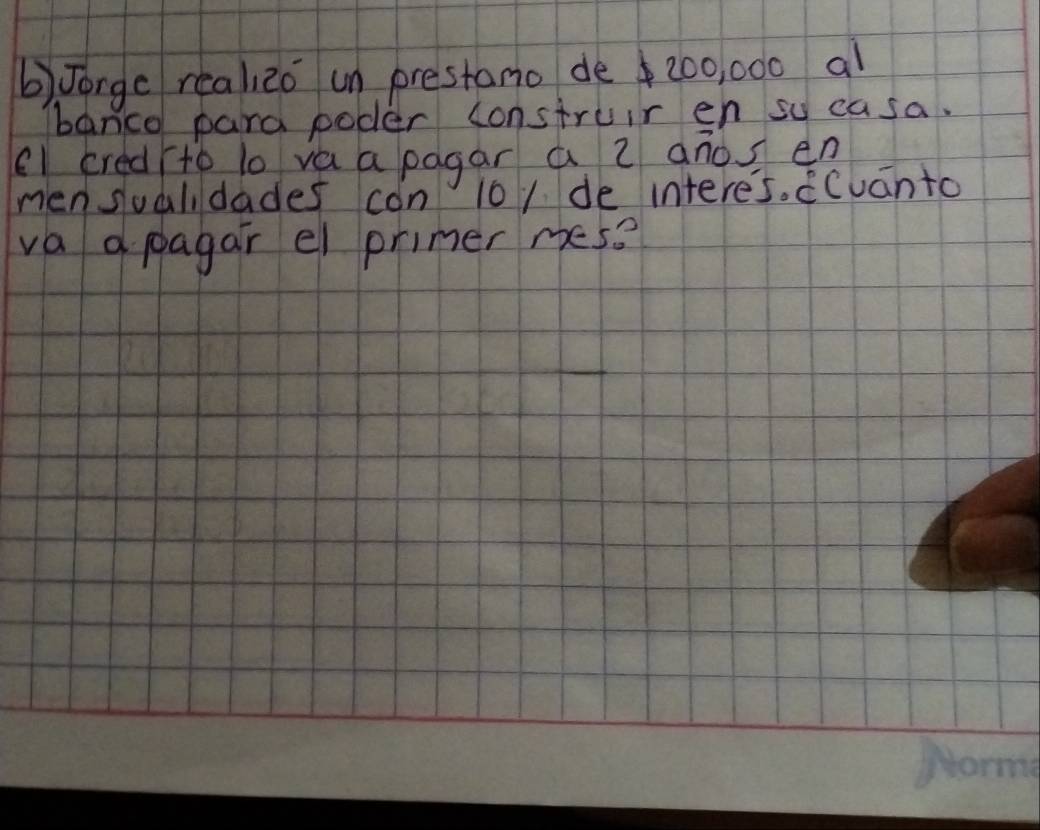 b) Jorge realizó un prestamo de $200,000 al
banco para poder construir en su casa.
el credito lo va a pagar a 2 años en
mensualidades con 10% de interés. ¿Cuánto
va a pagar el primer mes?
Norma